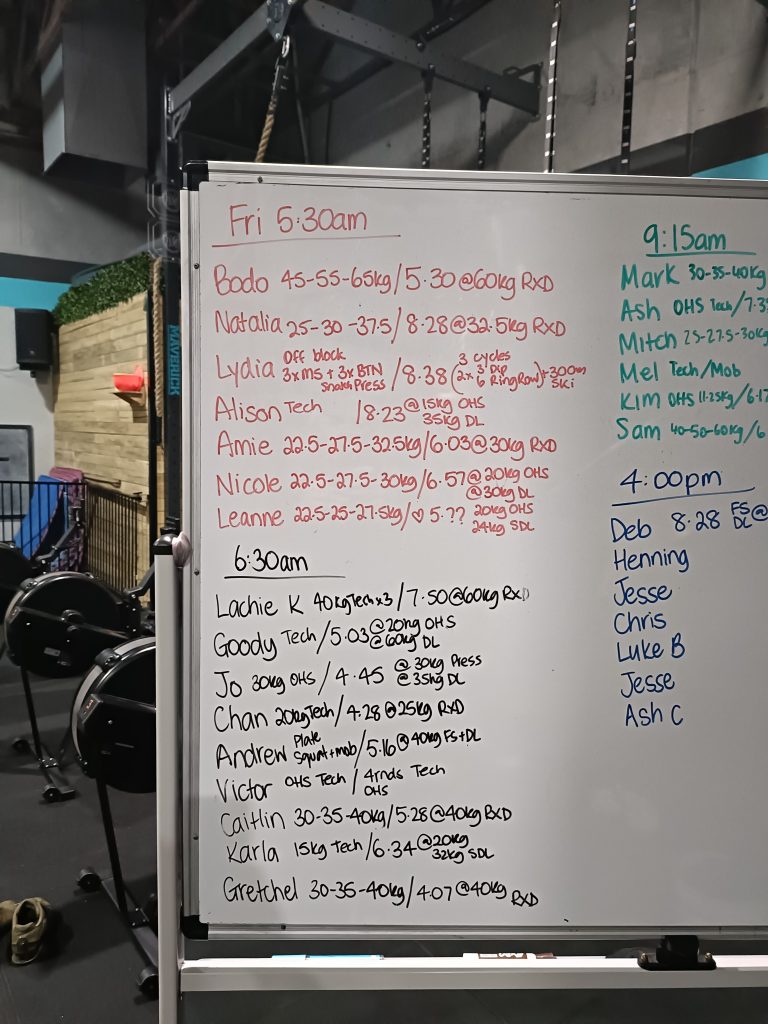 Fri 5:30am
Bodo 45-55-65kg/5.30@60kg RxD
Natalia 25-30-37.5/8.28@32.5kg RxD
Lydia Off block 3xms + 3xBTN Snatch Press /8.38 (3 cycles 2x 3 Dip 6 RingRow)+300m Ski
Alison Tech /8.23 @15kg OHS 35kg DL
Amie 22.5-27.5-32.5kg/6.03@30kg RxD
Nicole 22.5-27.5-30kg/6.57@20kg OHS @30kg DL
Leanne 22.5-25-27.5kg/♡ 5.?? 20kg OHS 24kg SDL
6:30am
Lachie K 40kgTechx3/7.50@60kg RxD
Goody Tech/5.03@20kg OHS @60kg DL
Jo 30kg OHS/4.45 @30kg Press @35kg DL
Chan 20kgTech/4.28@25kg RxD
Andrew Plate Squat+mob/5.16@40kg FS+DL
Victor OHS Tech/4rnds Tech OHS
Caitlin 30-35-40kg/5.28@40kg RxD
Karla 15kg Tech/6.34@20kg 32kg SDL
Gretchel 30-35-40kg/4.07@40kg RxD
9:15am
Mark 30-35-40kg
Ash OHS Tech/7.3
Mitch 25-27.5-30kg
Mel Tech/Mob
Kim OHS 11.25kg/6.17
Sam 40-50-60kg/6
4:00pm
Deb 8.28 FS@ DL
Henning
Jesse
Chris
Luke B
Jesse
Ash C
MAVERICK